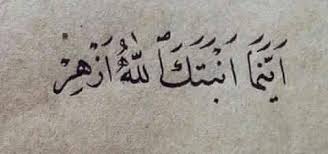 اَيَنَمَا اَنْبَتَكَ ٱللّٰهُ اَزْهِرْ